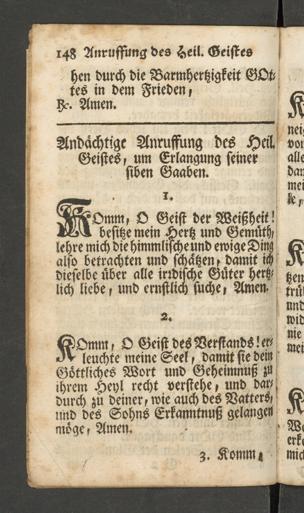 148 Anruffung des Heil. Geistes
hen durch die Barmhertzigkeit GOt-
tes in dem Frieden,
Ꝛc. Amen.
Andächtige Anruffung des Heil.
Geistes, um Erlangung seiner
siben Gaaben.
1.
KOmm, O Geist der Weißheit!
besitze mein Hertz und Gemüth,
lehre mich die himmlische und ewige Ding
also betrachten und schätzen, damit ich
dieselbe über alle irdische Güter hertz-
lich liebe, und ernstlich suche, Amen.
2.
KOmm, O Geist des Verstands! er-
leuchte meine Seel, damit sie dein
Göttliches Wort und Geheimnuß zu
ihrem Heyl recht verstehe, und dar-
durch zu deiner, wie auch des Vatters,
und des Sohns Erkanntnuß gelangen
möge, Amen.
3. Komm,